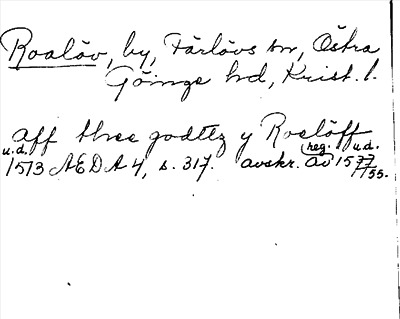 Roalöv, by, Färlövs sn, Östra
Göinge hd, Krist. l.
aff three godttz y Roslöff
u.d. 1513 ÆDA 4, s. 317. avskr. av reg. u.d. 1537/
/55.